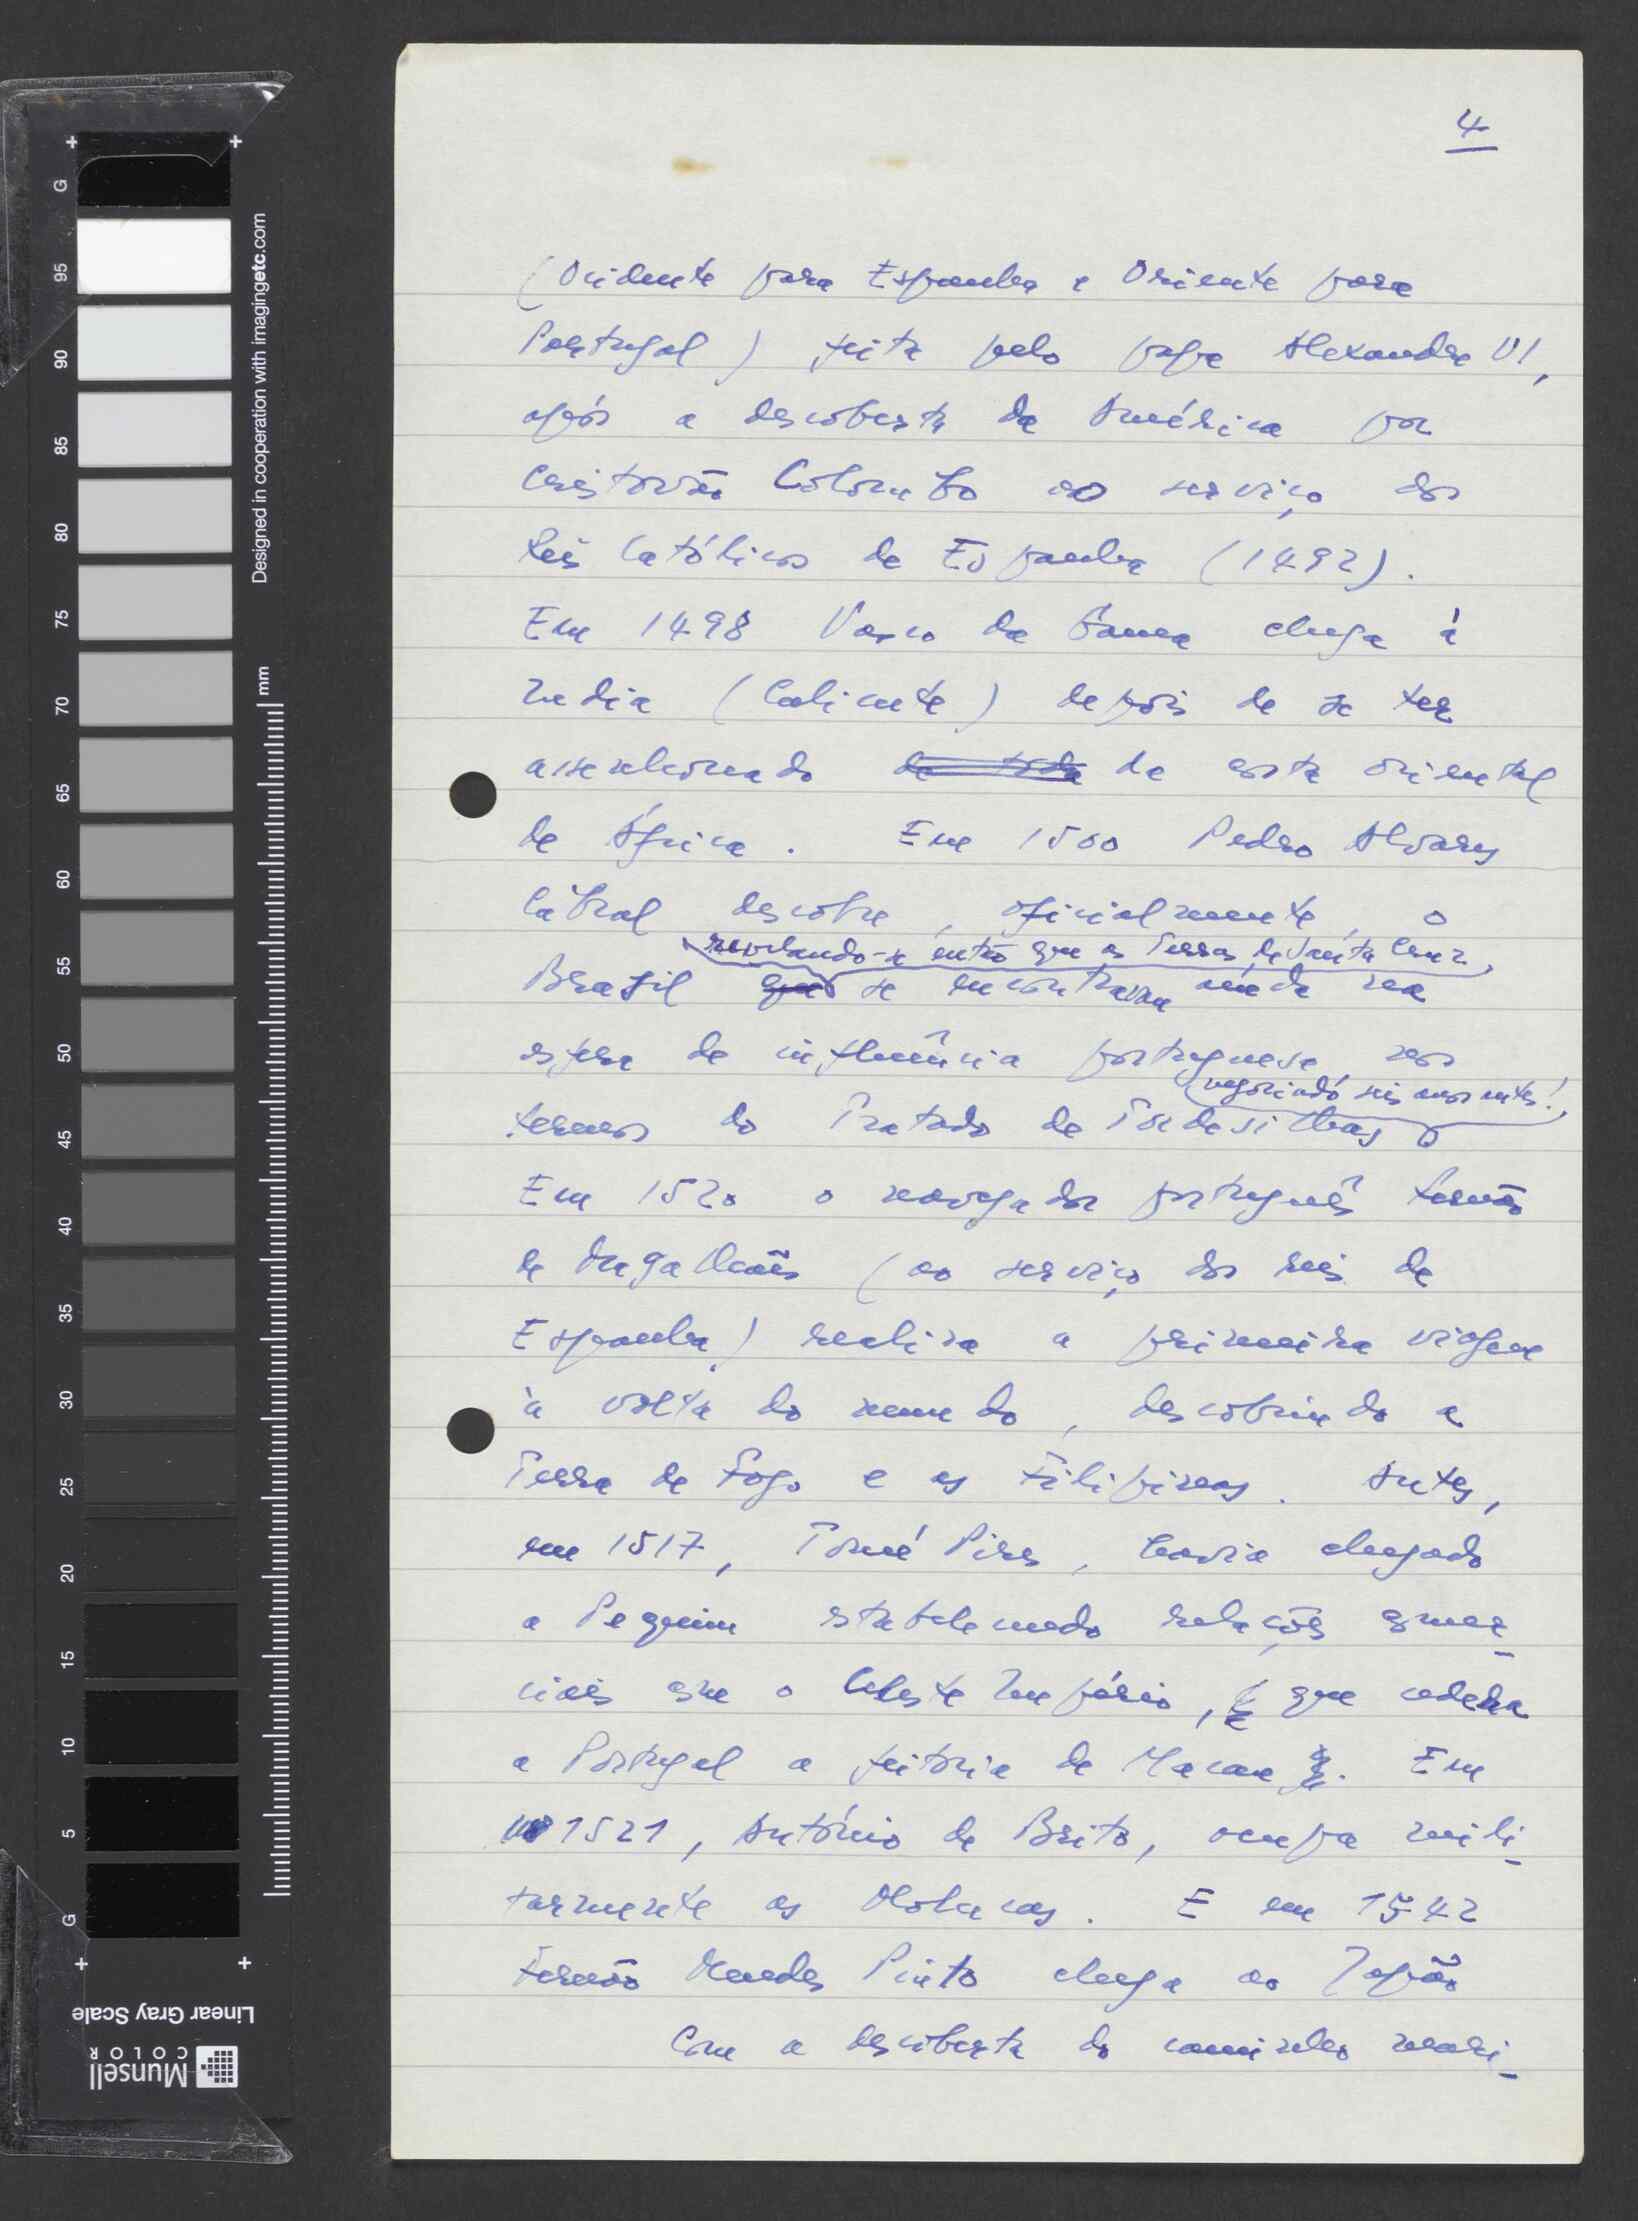 4
(Ocidente para Espanha e Oriente para
Portugal) feita pelo papa Alexandre VI,
após a descoberta da América por
Cristovão Colombo ao serviço dos
Reis Católicos de Espanha (1492).
Em 1498 Vasco da Gama chega à
India (Calicute) depois de se ter
assenhoreado de toda da costa oriental
de África. Em 1500 Pedro Alvares
Cabral descobre, oficialmente, o
revelando-se então que as Terras de Santa Cruz,
Brasil que se encontravam ainda na
esfera de influência portuguesa, nos
negociado seis anos antes!,
termos do Tratado de Tordesilhas
Em 1520 o navegador português Fernão
de Magalhães (ao serviço dos reis de
Espanha) realiza a primeira viagem
à volta do mundo, descobrindo a
Terra de Fogo e as Filipinas. Antes,
em 1517, Tomé Pires, havia chegado
a Pequim estabelecendo relações comer-
ciais com o Celeste Império, que cedera
a Portugal a feitoria de Macau. Em
1521, António de Brito, ocupa mili-
tarmente as Molucas. E em 1542
Fernão Mendes Pinto chega ao Japão
Com a descoberta do caminho marí-
Designed in cooperation with imagingetc.com
mm
G
95
90
85
80
75
70
65
60
55
50
45
40
35
30
25
20
15
10
5
G
Linear Gray Scale
Munsell
COLOR